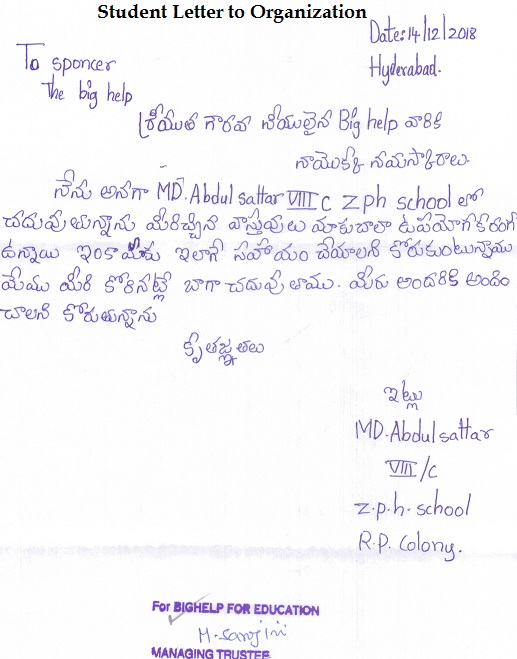 Student Letter to Organization
Date: 14/12/2018
Hyderabad.
To sponcer
The big help
శ్రీయుత గౌరవ నీయులైన Big help వారికి
నాయొక్క నమస్కారాలు.
నేను అనగా MD. Abdul sattar VIII c zph school లో
చదువుతున్నాను మీరిచ్చిన వాస్తువులు మాకు చాలా ఉపయోగకరంగ
ఉన్నాయి ఇంకా మీకు ఇలాగే సహాయం చేయాలని కోరుకుంటున్నాము
మేము మీరి కోరినట్లే బాగా చదువుతాము. మీరు అందరికి అందిం
చాలని కోరుతున్నాను
కృతజ్ఞతలు
ఇట్లు
MD. Abdul sattar
VIII/c
z.p.h. school
R.P. Colony.
For BIGHELP FOR EDUCATION
M. Sarojini
MANAGING TRUSTEE